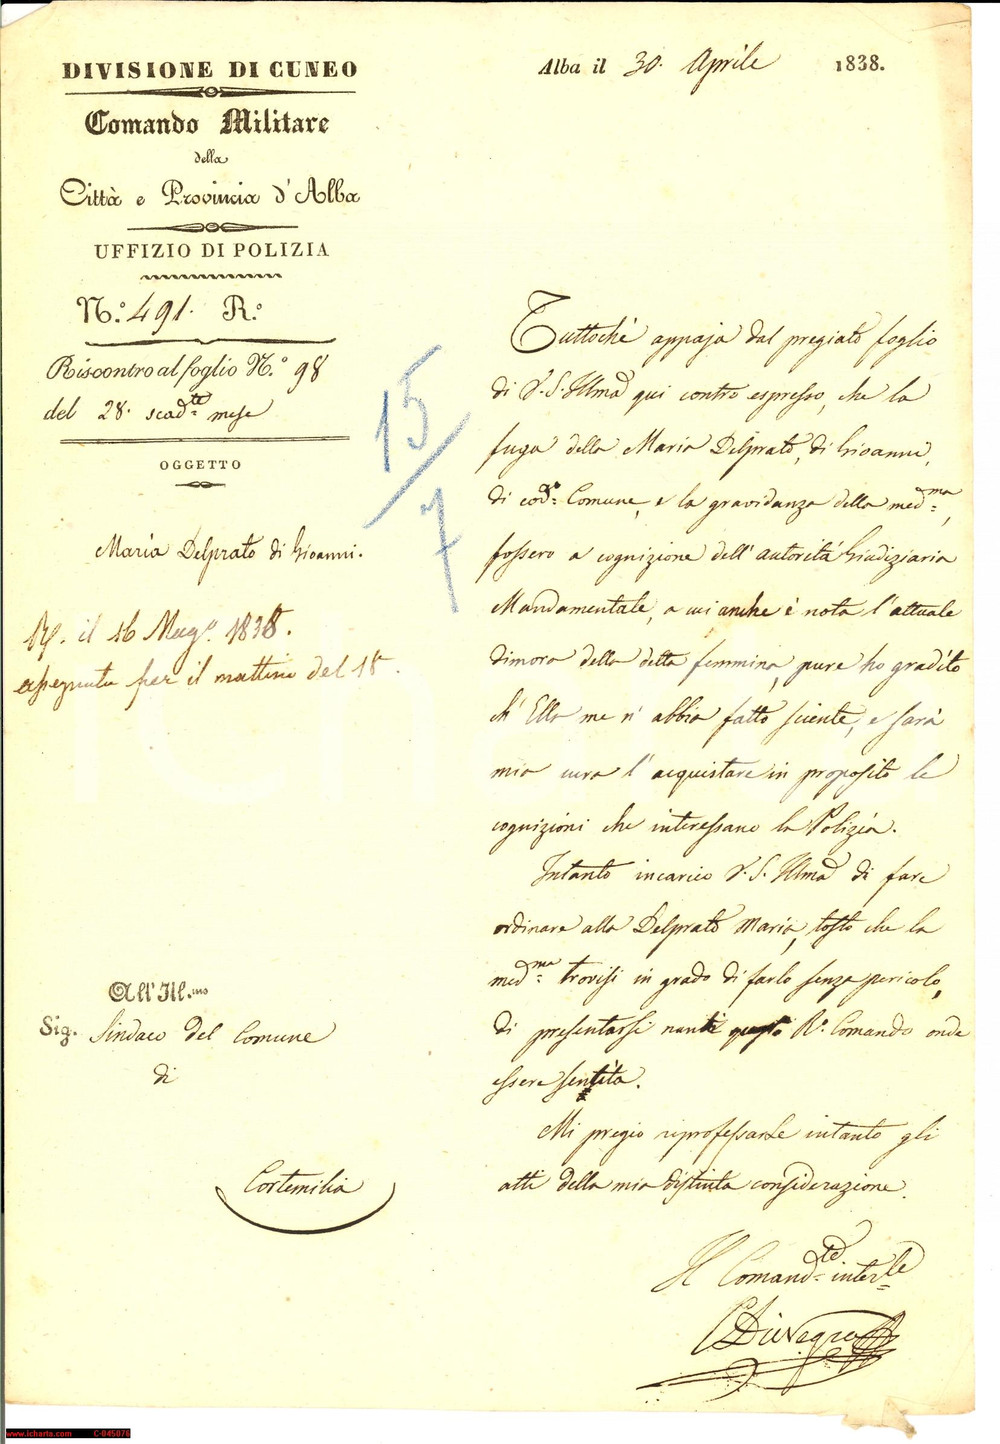 DIVISIONE DI CUNEO
Comando Militare
della
Città e Provincia d'Alba
UFFIZIO DI POLIZIA
N.° 491. R.°
Riscontro al foglio N.° 98
del 28. scad.te mese
OGGETTO
Maria Delprato di Gioanni.
il 16 Magg.° 1838.
per il mattino del 18.
15/7
All'Ill.mo
Sig. Sindaco del Comune
di
Cortemilia
Alba il 30. Aprile 1838.
Tuttochè appaja dal pregiato foglio
di V. S. Illma qui contro espresso, che la
fuga della Maria Delprato, di Gioanni,
di cod.° Comune, e la gravidanza della med.ma,
fossero a cognizione dell'autorità Giudiziaria
Mandamentale, a cui anche è nota l'attuale
dimora della detta femmina, pure ho gradito
ch'Ella me n'abbia fatto sciente, e sarà
mia cura l'acquistare in proposito le
cognizioni che interessano la Polizia.
Intanto incarico V. S. Illma di fare
ordinare alla Delprato Maria, tosto che la
med.ma trovisi in grado di farlo senza pericolo,
di presentarsi nanti questo R.° Comando onde
essere sentita.
Mi pregio riprofessarLe intanto gli
atti della mia distinta considerazione.
Il Comand.te inter.le
www.icharta.com C-045076